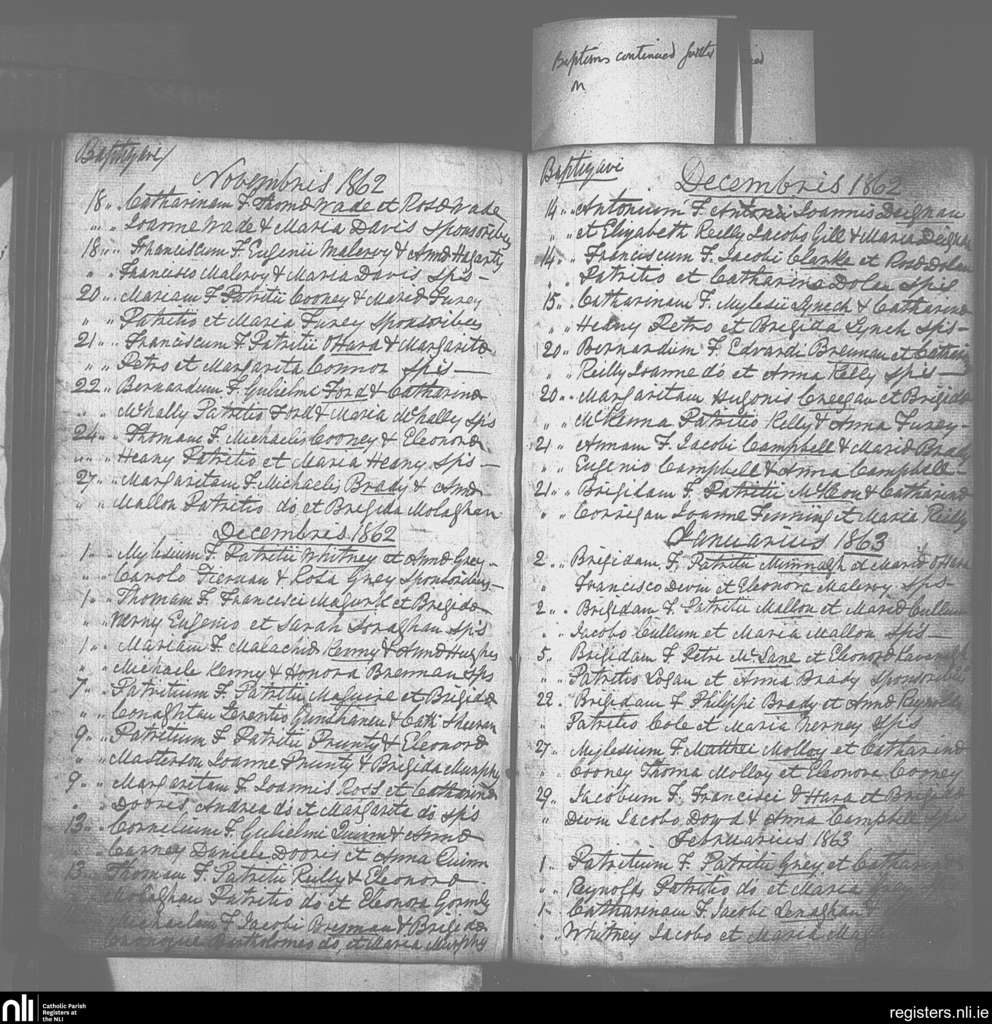 Baptisms continued further
on
Baptizavi
Novembris 1862
18 „ Catharinam F. Thomæ Wade et Rosæ Wade
„ „ Joanne Wade & Maria Davis Sponsoribus
18 „ Franciscum F. Eugenii Maleroy & Annæ Hagarty
„ Francisco Maleroy & Maria Davis Sp's —
20 „ Mariam F Patritii Cooney & Mariæ Furey
„ „ Patritio et Maria Furey Sponsoribus
21 „ Franciscum F Patritii O'Hara & Margaritæ
„ „ Petro et Margarita Connor Sp's —
22 „ Bernardum F. Gulielmi Ford & Catharinæ
„ „ McNally Patritio Ford & Maria McNally Sp's
24 „ Thomam F. Michaelis Cooney & Eleonoræ
„ „ Heany Patritio et Maria Heany Sp's —
27 „ Margaritam F. Michaelis Brady & Annæ
„ Mallon Patritio do et Brigida Molaghan
Decembris 1862
1 „ Mylesium F. Patritii Whitney et Annæ Grey —
„ „ Carolo Tiernan & Rosa Grey Sponsoribus —
1 „ Thomam F. Francisci et Brigidæ
„ Eugenio et Sarah Sp's
1 „ Mariam F. Malachiæ Kenny & Annæ Hughes
„ Michaele Kenny & Honora Brennan Sp's
7 „ Patritium F. Patritii Maguire et Brigidæ
„ Conaghtan Terentio & Cath
9 „ Patritium F. Patritii Prunty & Eleonoræ
„ Masterson Joanne Prunty & Brigida Murphy
9 „ Margaritam F. Joannis Ross et Catharinæ
„ Dooris Andrea do et Margarita do Sp's
13 „ Cornelium F. Gulielmi Quinn & Annæ
„ Carney Daniele Dooris et Anna Quinn
13 „ Thomam F. Patritii Reilly & Eleonoræ
Molaghan Patritio do et Eleonora Gormly
Michaelem F. Jacobi Brennan & Brigidæ
Bartholomeo do et Maria Murphy
Baptizavi
Decembris 1862
14 „ Antonium F. Antonii Joannis Deignan
„ et Elizabeth Reilly Jacobo Gill & Maria Deignan
14 „ Franciscum F. Jacobi Clarke et Rosæ Dolan
„ Patritio et Catharina Dolan Sp's
15 „ Catharinam F. Mylesii Lynch & Catharinæ
„ „ Heany Petro et Brigida Lynch Sp's —
20 „ Bernardum F. Edvardi Brennan et Catharinæ
„ Reilly Joanne do et Anna Reilly Sp's —
20 „ Margaritam Hugonis Creegan et Brigidæ
„ „ McKenna Patritio Kelly & Anna Furey —
21 „ Annam F. Jacobi Campbell & Mariæ Brady
„ „ Eugenio Campbell & Anna Campbell —
21 „ Brigidam F. Patritii & Catharinæ
„ „ Corrigan Joanne et Maria Reilly
Januarius 1863
2 „ Brigidam F. Patritii Mimnagh et Mariæ O'Hara
Francisco Devin et Eleonora Maleroy Sp's
2 „ Brigidam F. Patritii Mallon et Mariæ Cullum
„ Jacobo Cullum et Maria Mallon Sp's —
5 „ Brigidam F. Petri McLane et Eleonoræ Kavanagh
„ Patritio Logan et Anna Brady Sponsoribus
22 „ Brigidam F. Philippi Brady et Annæ Reynolds
„ Patritio Cole et Maria Sp's
27 „ Mylesium F. Matthæi Molloy et Catharinæ
„ Cooney Thoma Molloy et Eleonora Cooney
29 „ Jacobum F. Francisci O'Hara et Brigidæ
„ Devin Jacobo Dowd & Anna Campbell Sp's
Februarius 1863
1 „ Patritium F. Patritii Grey et Catharinæ
„ Reynolds Patritio do et Maria Grey
1 „ Catharinam F. Jacobi Lenaghan &
„ Whitney Jacobo et Maria
nli
Catholic Parish
Registers at
the NLI
registers.nli.ie